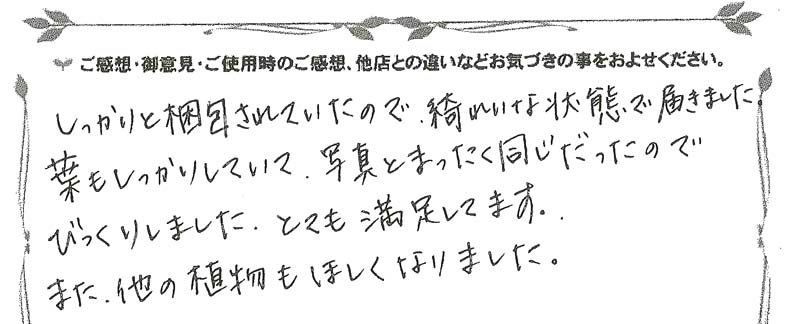 ご感想・御意見・ご使用時のご感想、他店との違いなどお気づきの事をおよせください。
しっかりと梱包されていたので、綺れいな状態で届きました。
葉もしっかりしていて、写真とまったく同じだったので
びっくりしました。とても満足してます。
また、他の植物もほしくなりました。